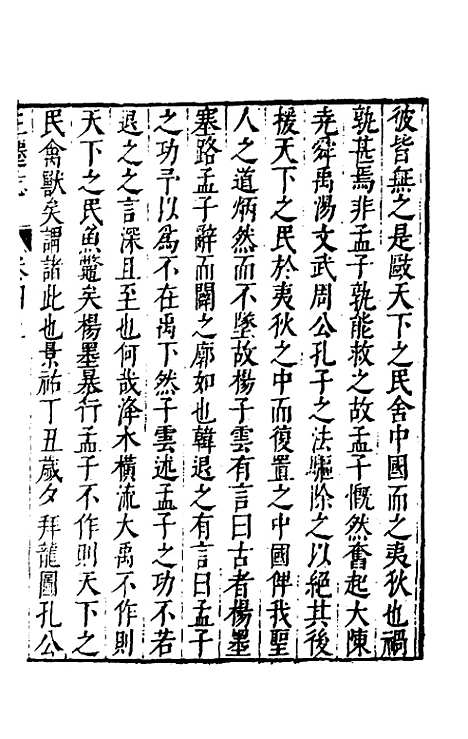 彼皆無之是敺天下之民舍中國而之夷狄也禍
孰甚焉非孟子孰能救之故孟子慨然奮起大陳
堯舜禹湯文武周公孔子之法驅除之以絕其後
援天下之民於夷狄之中而復置之中國俾我聖
人之道炳然而不墜故楊子雲有言曰古者楊墨
塞路孟子辭而闢之廓如也韓退之有言曰孟子
之功予以爲不在禹下然子雲述孟子之功不若
退之之言深且至也何哉洚水橫流大禹不作則
天下之民魚鼈矣楊墨暴行孟子不作則天下之
民禽獸矣謂諸此也景祐丁丑歲夕拜龍圖孔公